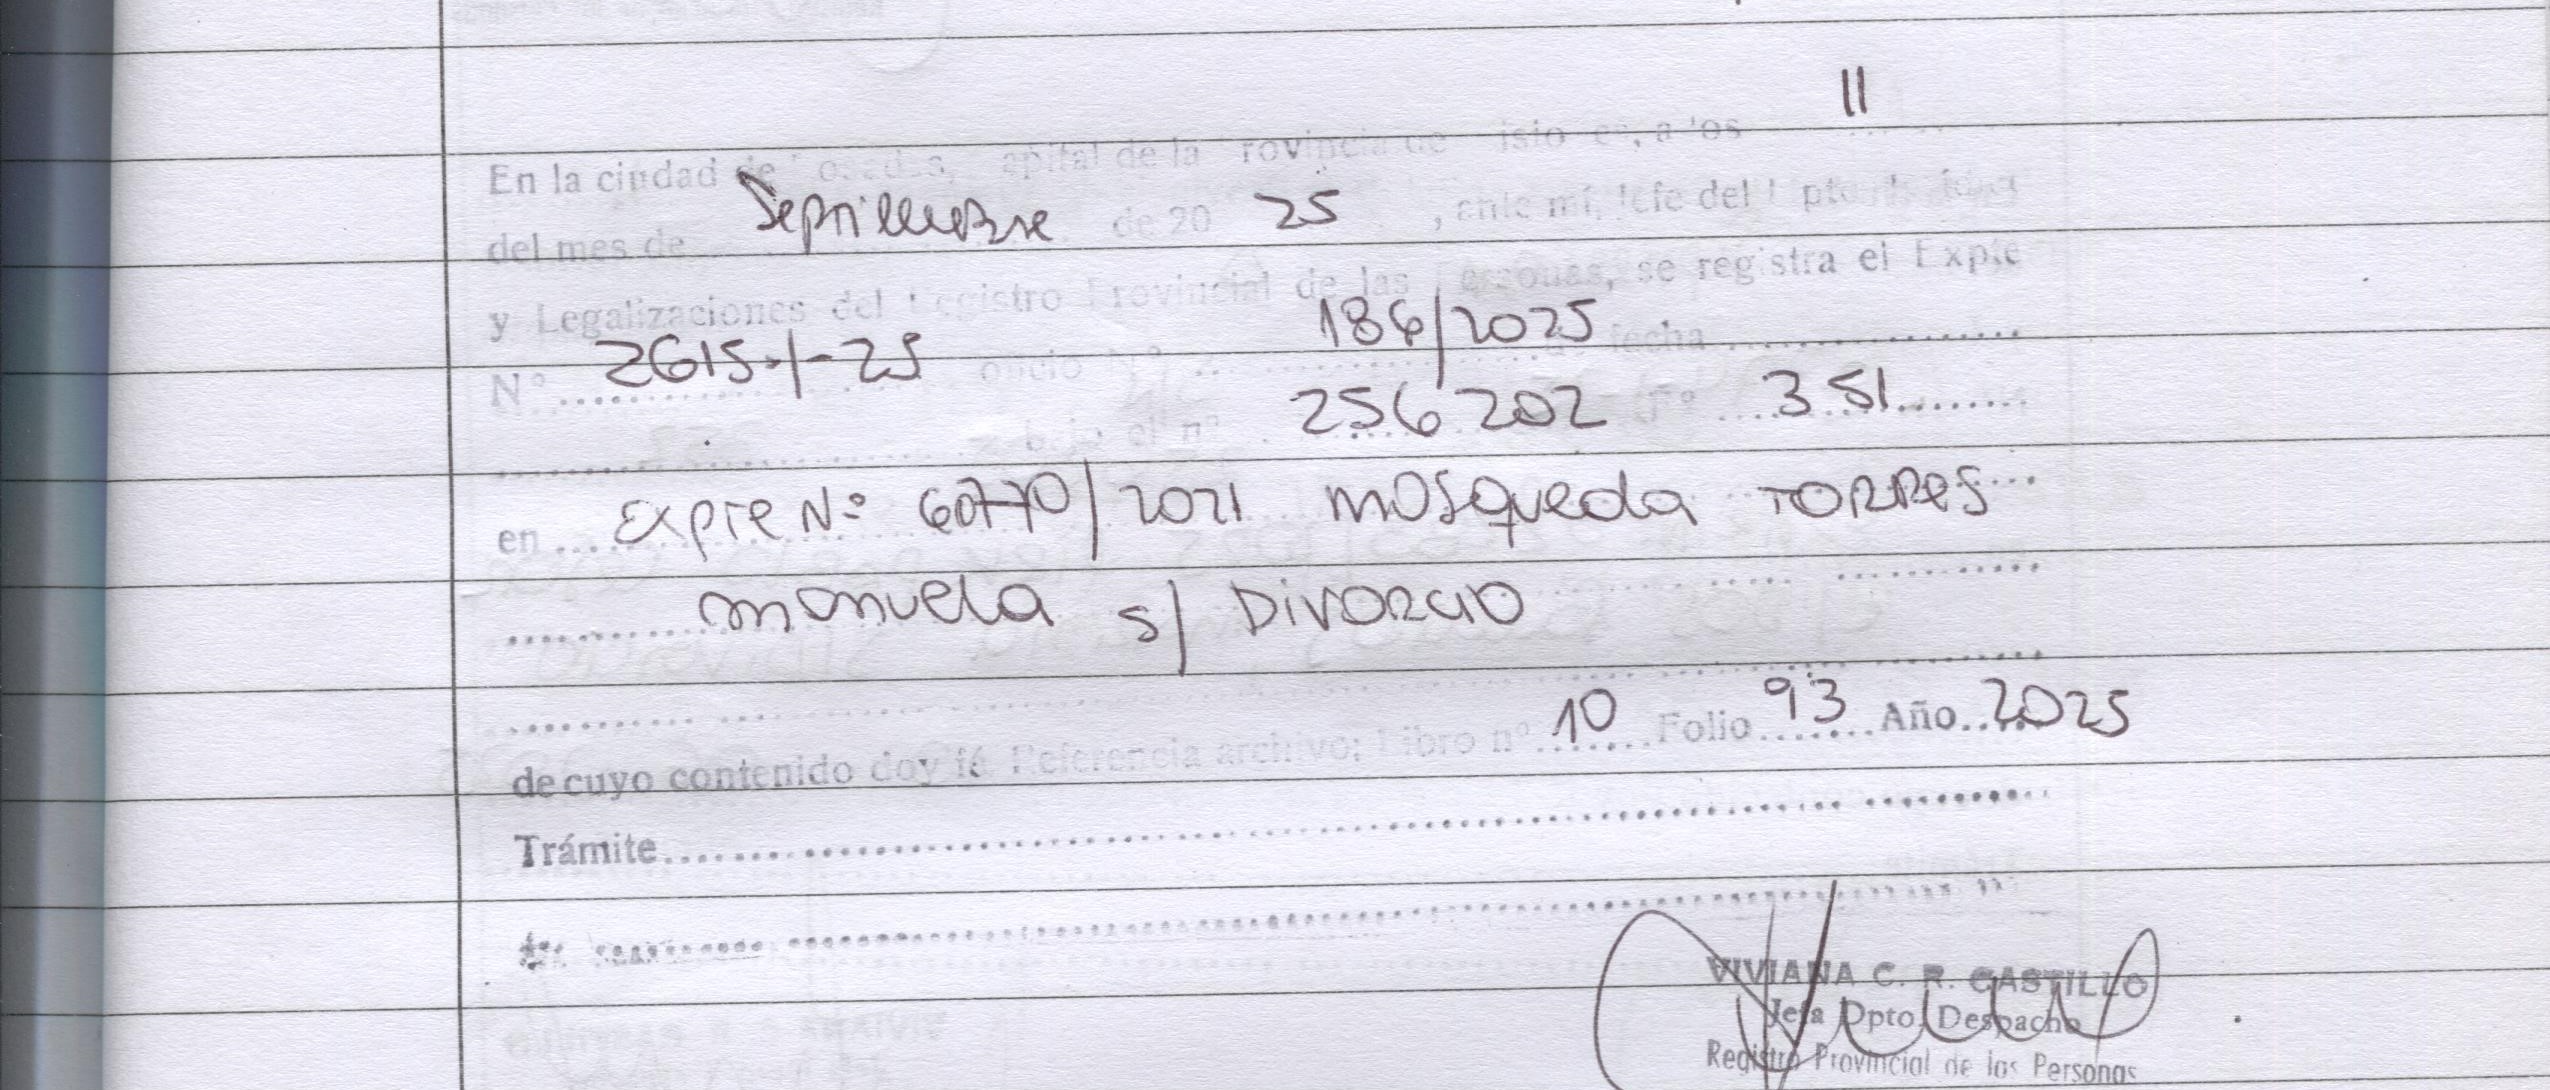 11
En la ciudad de Posadas, capital de la Provincia de Misiones, a los
del mes de Septiembre de 20 25, ante mí, Jefe del Dpto
y Legalizaciones del Registro Provincial de las Personas, se registra el Expte
Nº 2615-/-25 oficio Nº 186/2025 de fecha
bajo el nº 256202 Fº 351
en Expte Nº 60770/2021 MOSQUEDA TORRES
manuela s/ DIVORCIO
de cuyo contenido doy fé Referencia archivo: Libro nº 10 Folio 93 Año 2025
Trámite
VIVIANA C. R. CASTILLO
Jefa Dpto. Despacho
Registro Provincial de las Personas